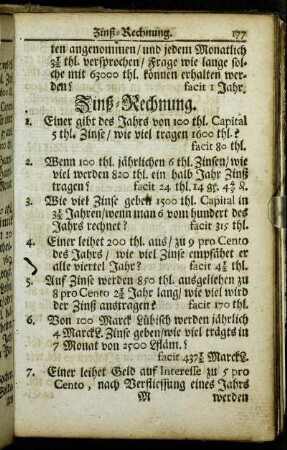 Zinß-Rechnung. 177
ten angenommen/und jedem Monatlich
3¾ thl. versprochen/Frage wie lange sol-
che mit 63000 thl. können erhalten wer-
den? facit 1 Jahr.
Zinß-Rechnung.
1. Einer gibt des Jahrs von 100 thl. Capital
5 thl. Zinse/wie viel tragen 1600 thl.?
facit 80 thl.
2. Wenn 100 thl. jährlichen 6 thl. Zinsen/wie
viel werden 820 thl. ein halb Jahr Zinß
tragen? facit 24 thl. 14 gs.
3. Wie viel Zinse geben 1500 thl. Capital in
3½ Jahren/wenn man 6 vom hundert des
Jahrs rechnet? facit 315 thl.
4. Einer leihet 200 thl. aus/zu 9 pro Cento
des Jahrs/wie viel Zinse empfähet er
alle viertel Jahr? facit 4½ thl.
5. Auf Zinse werden 850 thl. ausgeliehen zu
8 pro Cento 2½ Jahr lang/wie viel wird
der Zinß austragen? facit 170 thl.
6. Von 100 Marck Lübisch werden jährlich
4 MarckL. Zinse geben/wie viel trägts in
7 Monat von
facit 437½ MarckL.
7. Einer leihet Geld auf Interesse zu 5 pro
Cento, nach Verfliessung eines Jahrs
M werden